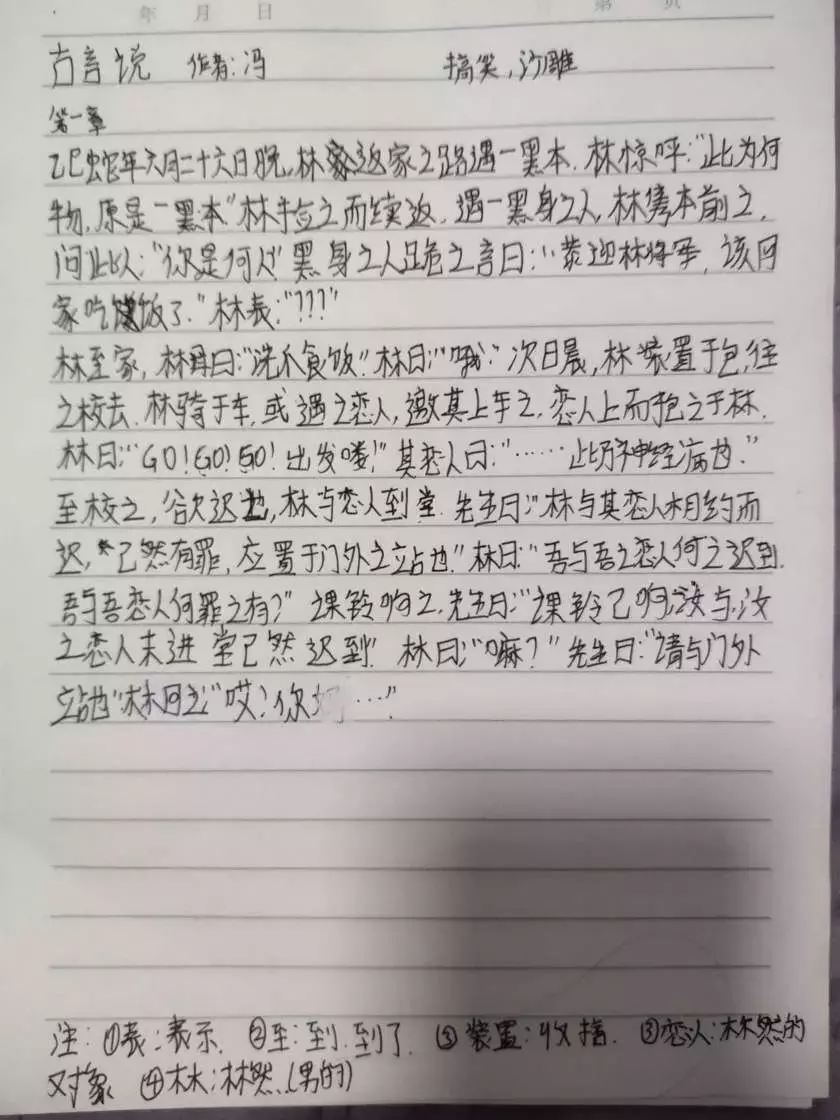 年 月 日 第 页
古言说 作者:冯 搞笑,沙雕
第一章
乙巳蛇年六月二十六日晚,林家返家之路遇一黑本.林惊呼:"此为何
物,原是一黑本"林捡之而续返.遇一黑身之人,林携本前之,
问此人:"你是何人"黑身之人跪之言曰:"恭迎林将军,该回
家吃饭了."林表:"???"
林至家,林母曰:"洗爪食饭!"林曰:"哦."次日晨,林装置于包,往
之校去.林骑于车,或遇之恋人,邀其上车之,恋人上而抱之于林.
林曰:"GO!GO!GO!出发喽!"其恋人曰:"……此乃神经病也."
至校之,欲迟也,林与恋人到堂.先生曰:"林与其恋人相约而
迟,已然有罪,应置于门外之站也."林曰:"吾与吾之恋人何之迟到.
吾与吾恋人何罪之有?"课铃响之,先生曰:"课铃已响,汝与汝
之恋人未进堂已然迟到!"林曰:"嘛?"先生曰:"请与门外
站也"林曰:"哎!你…"
注:①表:表示.②至:到.到了.③装置:收拾.③恋人:林然的
对象 ④林:林然.(男的)